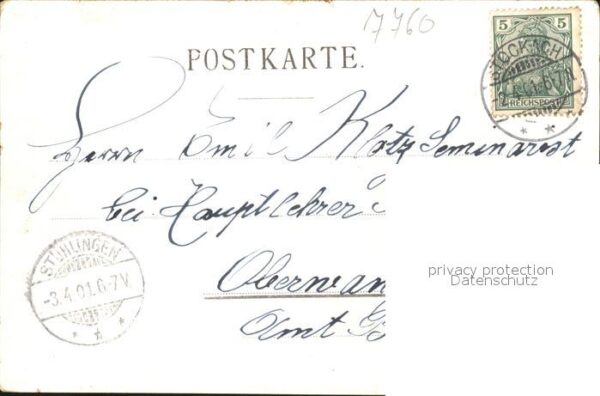 7760
POSTKARTE.
5
REICHSPOST
STOCKACH
2.4.01.6-7N.
Herrn Emil Klotz Seminarist
bei Hauptlehrer
Oberwan
Amt B
STÜHLINGEN
-3.4.01.6-7V.
privacy protection
Datenschutz